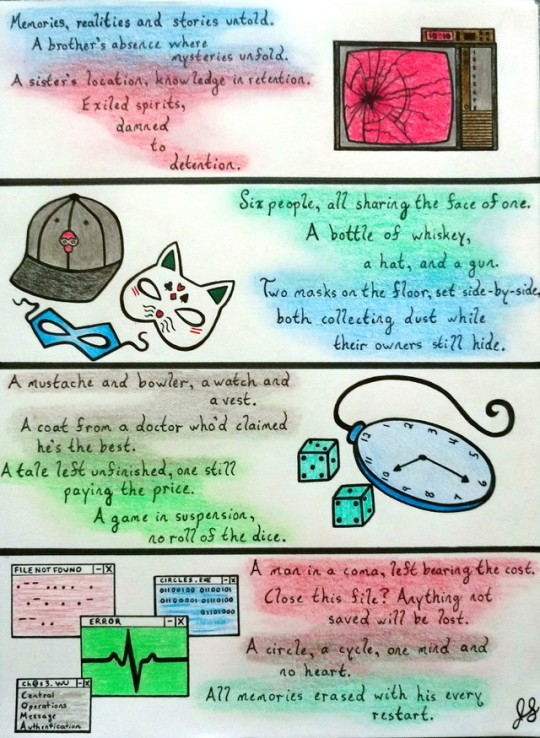 Memories, realities and stories untold.
A brother's absence where
mysteries unfold.
A sister's location, knowledge in retention.
Exiled spirits,
damned
to
detention.
Six people, all sharing the face of one.
A bottle of whiskey,
a hat, and a gun.
Two masks on the floor, set side-by-side,
both collecting dust while
their owners still hide.
A mustache and bowler, a watch and
a vest.
A coat from a doctor who'd claimed
he's the best.
A tale left unfinished, one still
paying the price.
A game in suspension,
no roll of the dice.
12 1 2 3 4 5 6 7 8 9 10 11
FILE NOT FOUND -|X
CIRCLES.EXE -|X
ERROR -|X
-|X
Central
Operations
Message
Authentication
A man in a coma, left bearing the cost.
Close this file? Anything not
saved will be lost.
A circle, a cycle, one mind and
no heart.
All memories erased with his every
restart.
JS